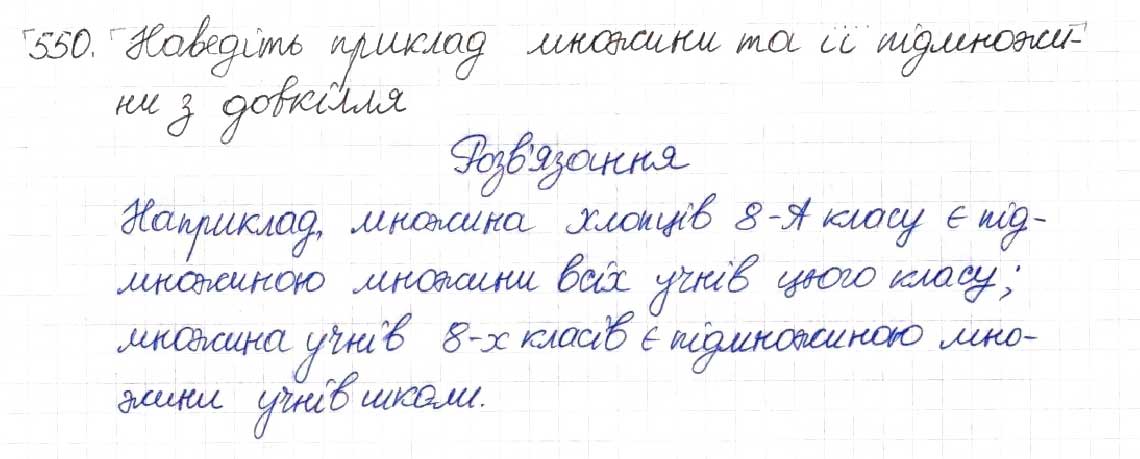 550. Наведіть приклад множини та її підмножи-
ни з довкілля
Розв'язання
Наприклад, множина хлопців 8-А класу є під-
множиною множини всіх учнів цього класу;
множина учнів 8-х класів є підмножиною мно-
жини учнів школи.